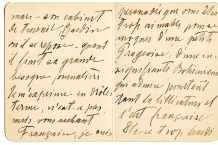 mais – son cabinet
de travail Jardin
où il se repose – quand
il finit sa grande
besogne, journalière
je m'exprime en drôles
terme, n'est-ce pas
mais vous sachant
Française, je suis
persuadée que vous êtes
trop aimable pour se
moquer d'une petite
d'une in-
signifiante Bohémienne
qui admire pourtant
tant la littérature et
l'art Française
Elle a trop